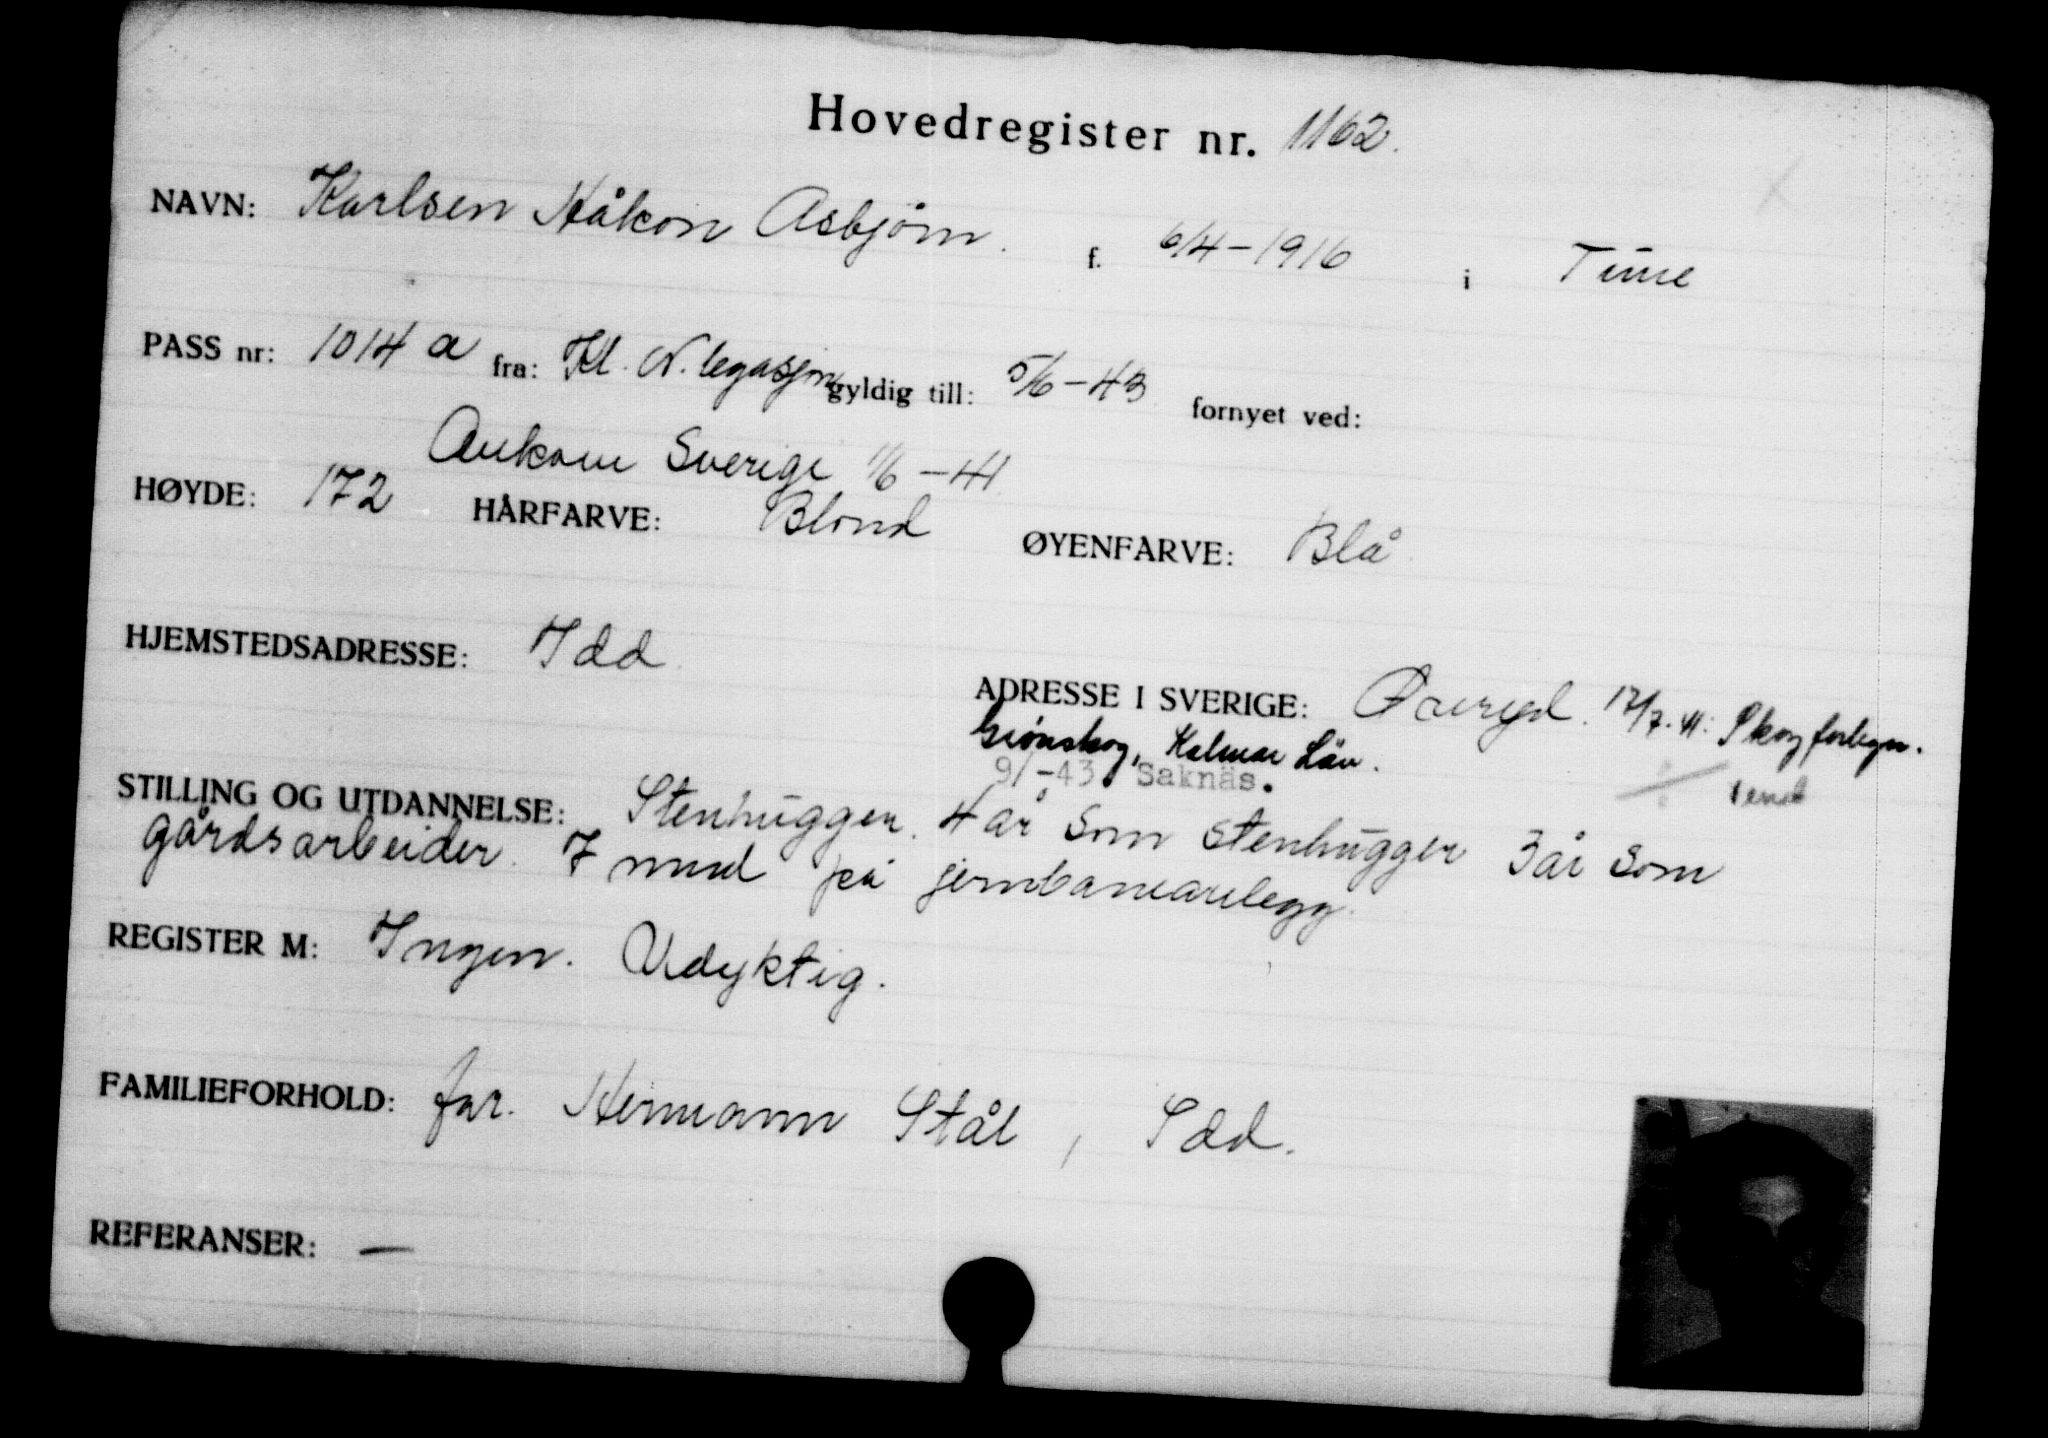 Hovedregister nr. 1162.
NAVN: Karlsen Håkon Asbjørn. f. 6/4-1916 i Tune
PASS nr: 1014 a fra: Kl. N. legasjon gyldig till: 5/6-43 fornyet ved:
Ankom Sverige 1/6-41
HØYDE: 172 HÅRFARVE: Blond ØYENFARVE: Blå
HJEMSTEDSADRESSE: Idd
ADRESSE I SVERIGE: Öreryd. 17/7.41: Skogforlegn.
Grönskog, Kalmar Län.
9/-43 Saknäs. vend
STILLING OG UTDANNELSE: Stenhugger. 4 år som stenhugger 3 år som
gårdsarbeider. 7 mnd på jernbaneanlegg.
REGISTER M: Ingen. Udyktig.
FAMILIEFORHOLD: far. Hermann Stål, Idd.
REFERANSER: —